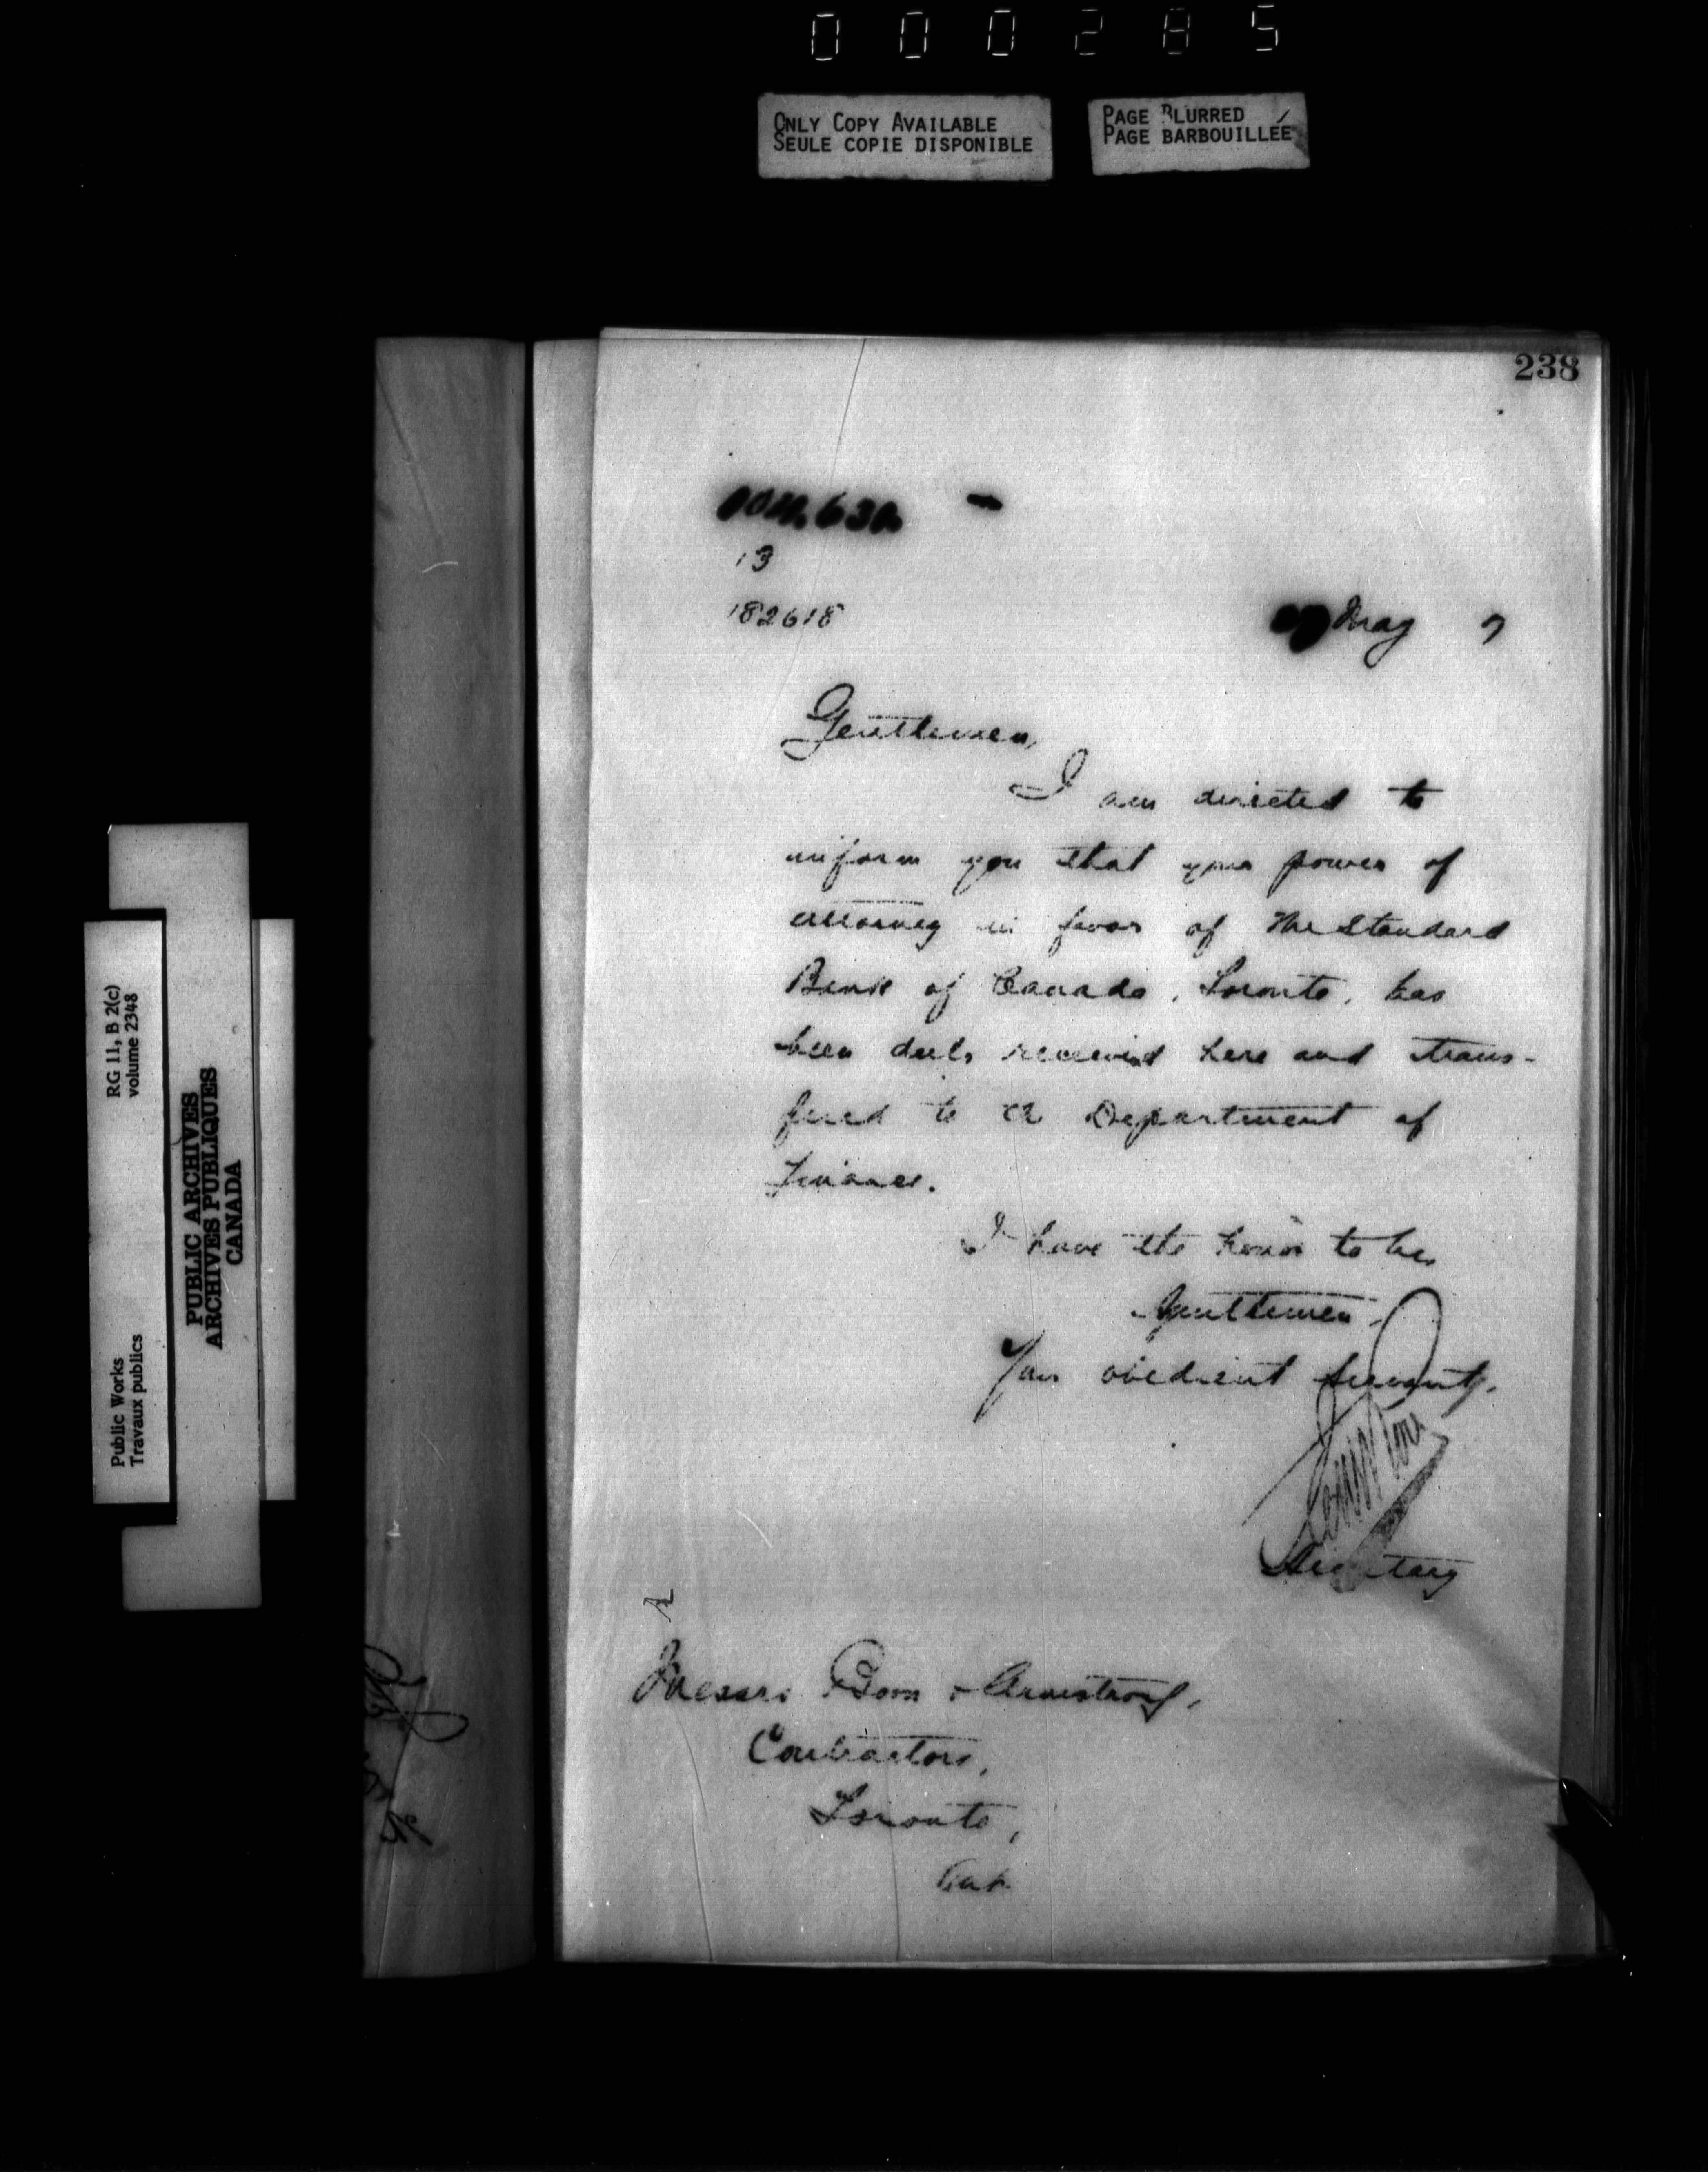 000285
ONLY COPY AVAILABLE
SEULE COPIE DISPONIBLE
PAGE BLURRED
PAGE BARBOUILLÉE
238
13
182618
May 7
Gentlemen,
I am directed to
inform you that your power of
attorney in favor of The Standard
Bank of Canada, Toronto, has
been duly received here and trans-
fered to the Department of
Finance.
I have the honor to be,
Gentlemen,
Your obedient servant,
Secretary
Messrs & Armstrong,
Contractors,
Toronto,
Ont.
RG 11, B 2(c)
volume 2348
Public Works
Travaux publics
PUBLIC ARCHIVES
ARCHIVES PUBLIQUES
CANADA